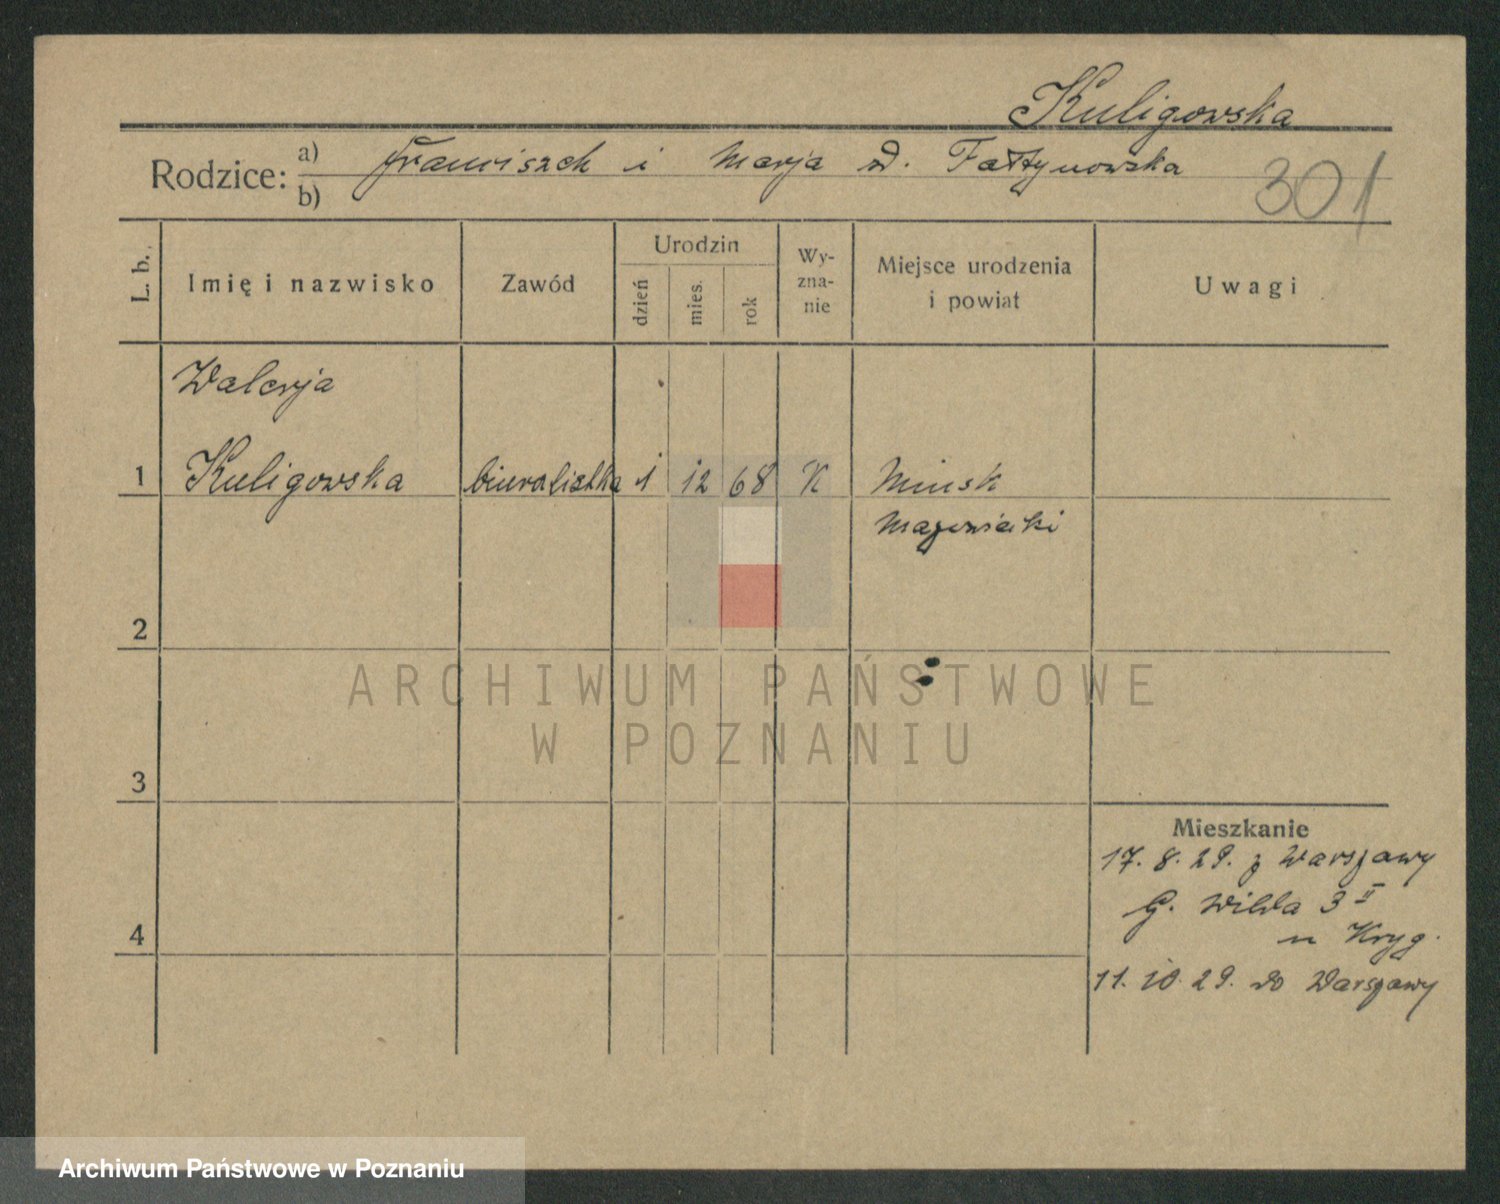 Kuligowska
Rodzice: a) Franciszek i Marja d.
b)
301
L. b.
Imię i nazwisko
Zawód
Urodzin
dzień
mies.
rok
Wy-
zna-
nie
Miejsce urodzenia
i powiat
Uwagi
Walerja
1 Kuligowska biuralistka 1 12 68 K Minsk
Mazowiecki
2
ARCHIWUM PAŃSTWOWE
W POZNANIU
3
Mieszkanie
17. 8. 29. z Warszawy
G. Wilda 3 II
u Kryg.
4
11. 10. 29. do Warszawy
Archiwum Państwowe w Poznaniu